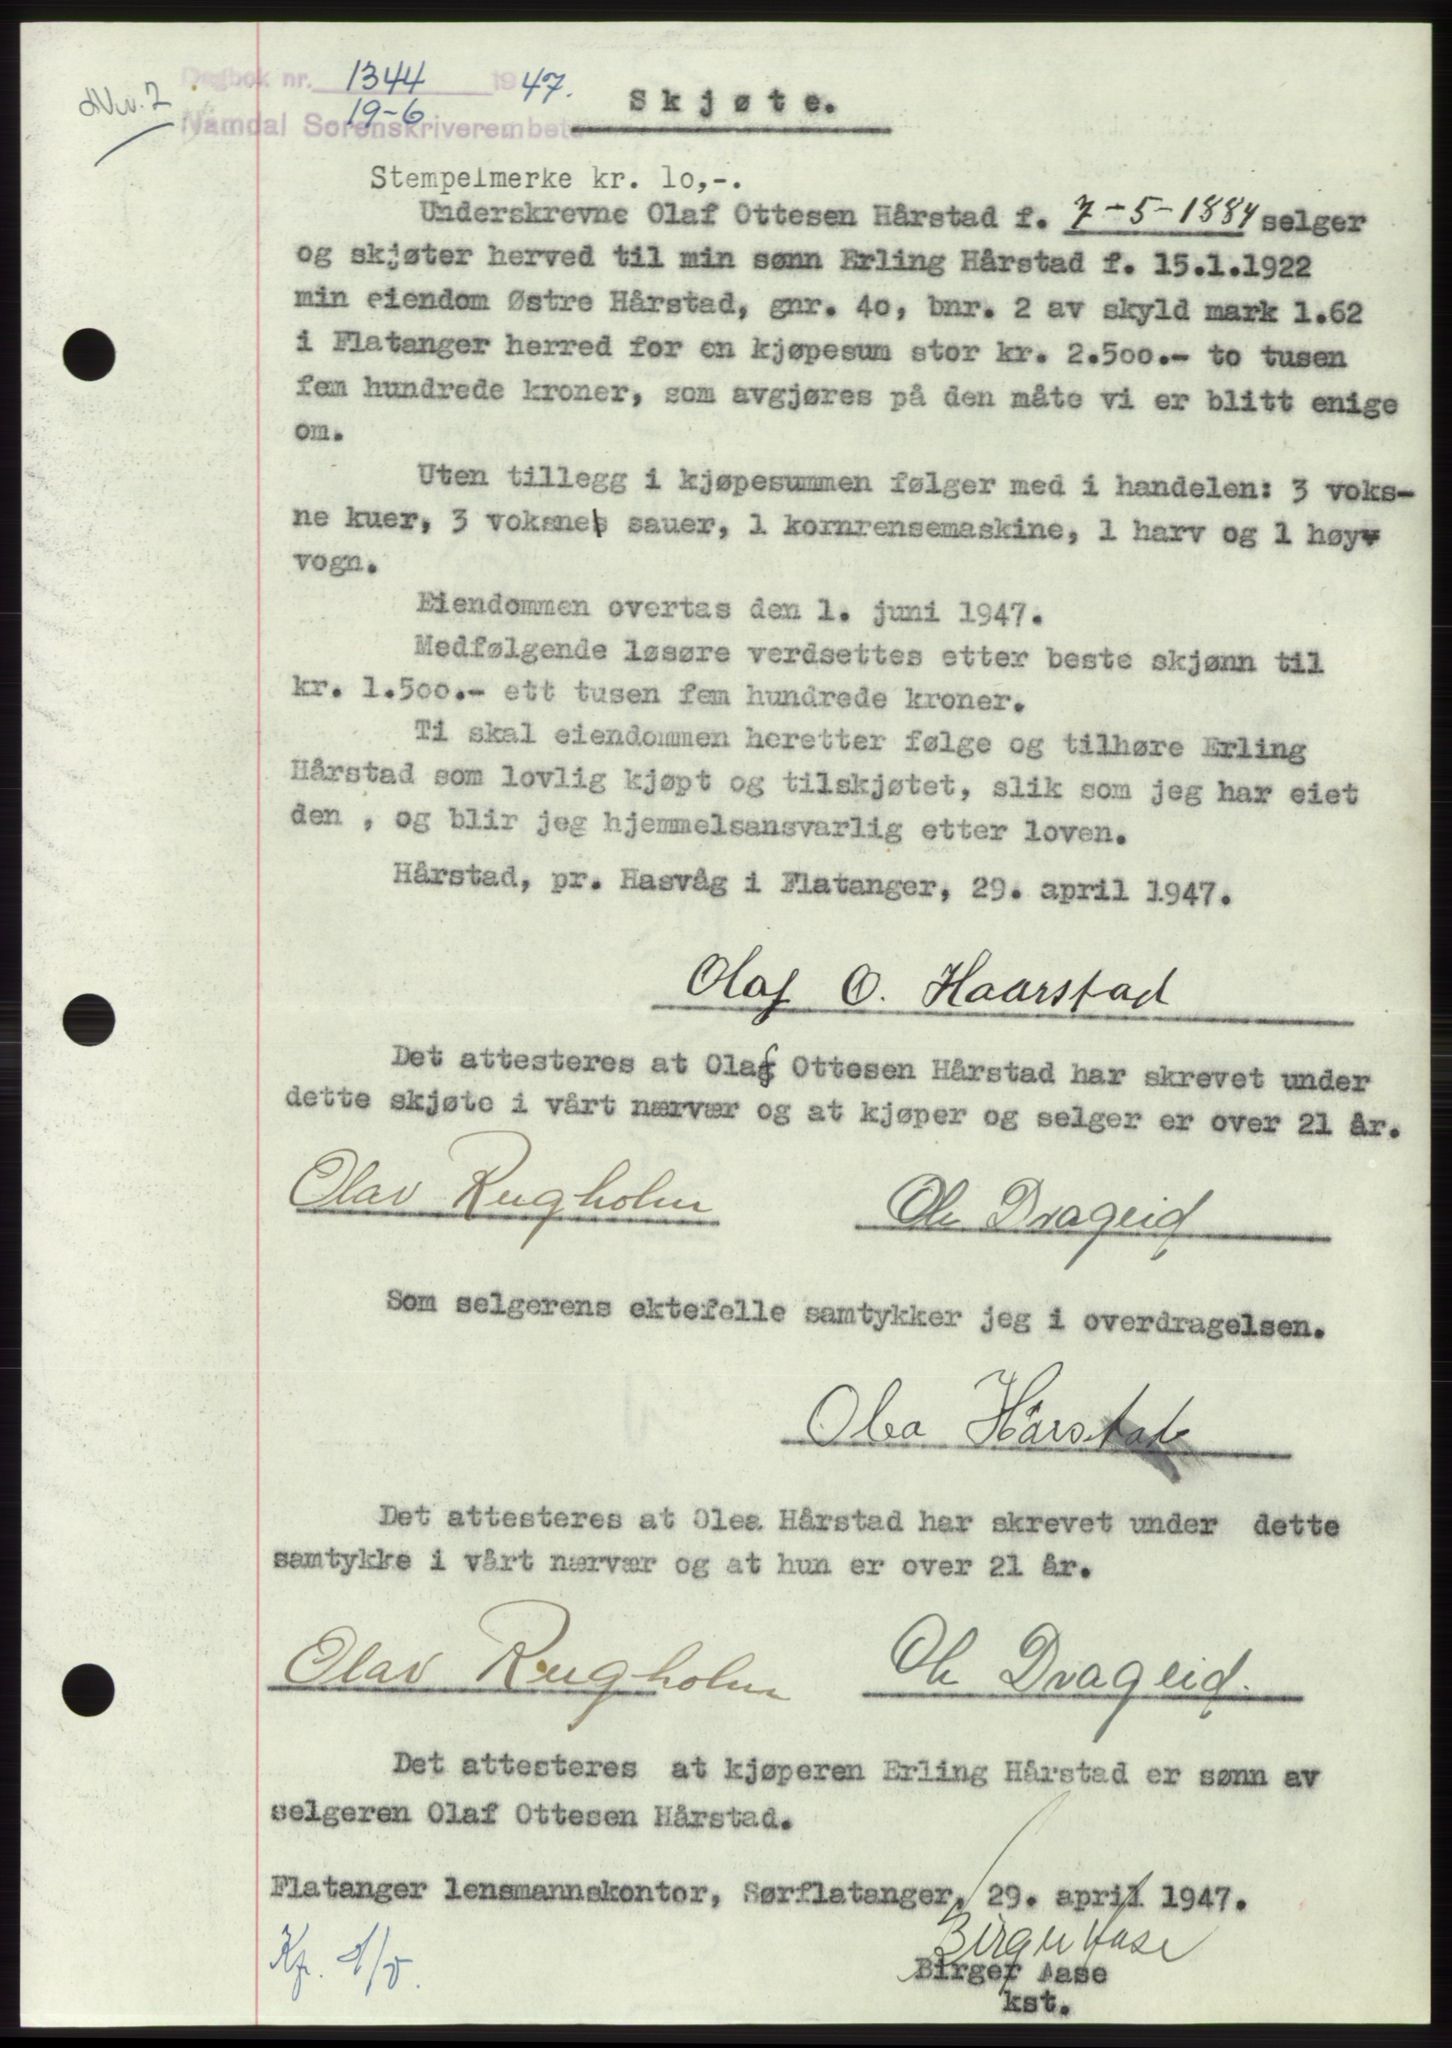 Dagbok nr. 1344 1947.
19-6
Namdal Sorenskriverembete
Skjøte.
Stempelmerke kr. lo,-.
Underskrevne Olaf Ottesen Hårstad f. 7-5-1884 selger
og skjøter herved til min sønn Erling Hårstad f. 15.1.1922
min eiendom Østre Hårstad, gnr. 4o, bnr. 2 av skyld mark 1.62
i Flatanger herred for en kjøpesum stor kr. 2.5oo.- to tusen
fem hundrede kroner, som avgjøres på den måte vi er blitt enige
om.
Uten tillegg i kjøpesummen følger med i handelen: 3 voks-
ne kuer, 3 voksne sauer, 1 kornrensemaskine, 1 harv og 1 høy-
vogn.
Eiendommen overtas den 1. juni 1947.
Medfølgende løsøre verdsettes etter beste skjønn til
kr. 1.5oo.- ett tusen fem hundrede kroner.
Ti skal eiendommen heretter følge og tilhøre Erling
Hårstad som lovlig kjøpt og tilskjøtet, slik som jeg har eiet
den , og blir jeg hjemmelsansvarlig etter loven.
Hårstad, pr. Hasvåg i Flatanger, 29. april 1947.
Olaf O. Haarstad
Det attesteres at Olaf Ottesen Hårstad har skrevet under
dette skjøte i vårt nærvær og at kjøper og selger er over 21 år.
Olav Rugholm Ole Drageid
Som selgerens ektefelle samtykker jeg i overdragelsen.
Olea Hårstad
Det attesteres at Olea Hårstad har skrevet under dette
samtykke i vårt nærvær og at hun er over 21 år.
Olav Rugholm Ole Drageid.
Det attesteres at kjøperen Erling Hårstad er sønn av
selgeren Olaf Ottesen Hårstad.
Flatanger lensmannskontor, Sørflatanger, 29. april 1947.
Birger Aase
Birger Aase
kst.